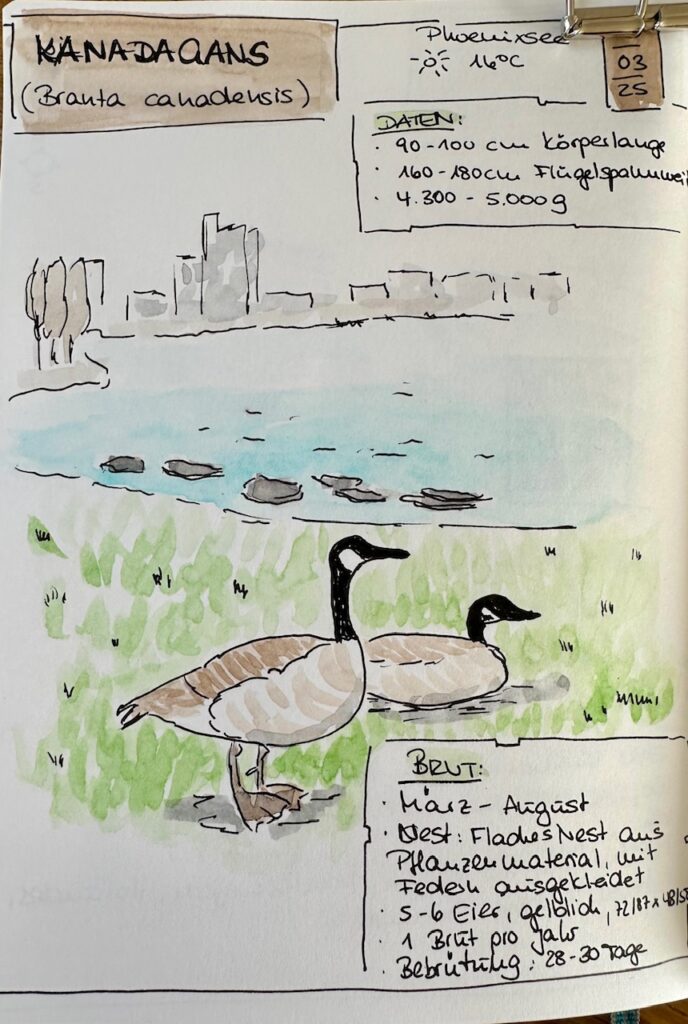 KANADAGANS
(Branta canadensis)
Phoenixsee
16°C
03
25
DATEN:
· 90-100 cm Körperlänge
· 160-180cm Flügelspannwei
· 4.300 - 5.000g
BRUT:
· März - August
· Nest: Flaches Nest aus
Pflanzenmaterial, mit
Federn ausgekleidet
· 5-6 Eier, gelblich, 72/87 x 48/5
· 1 Brut pro Jahr
· Bebrütung: 28-30 Tage